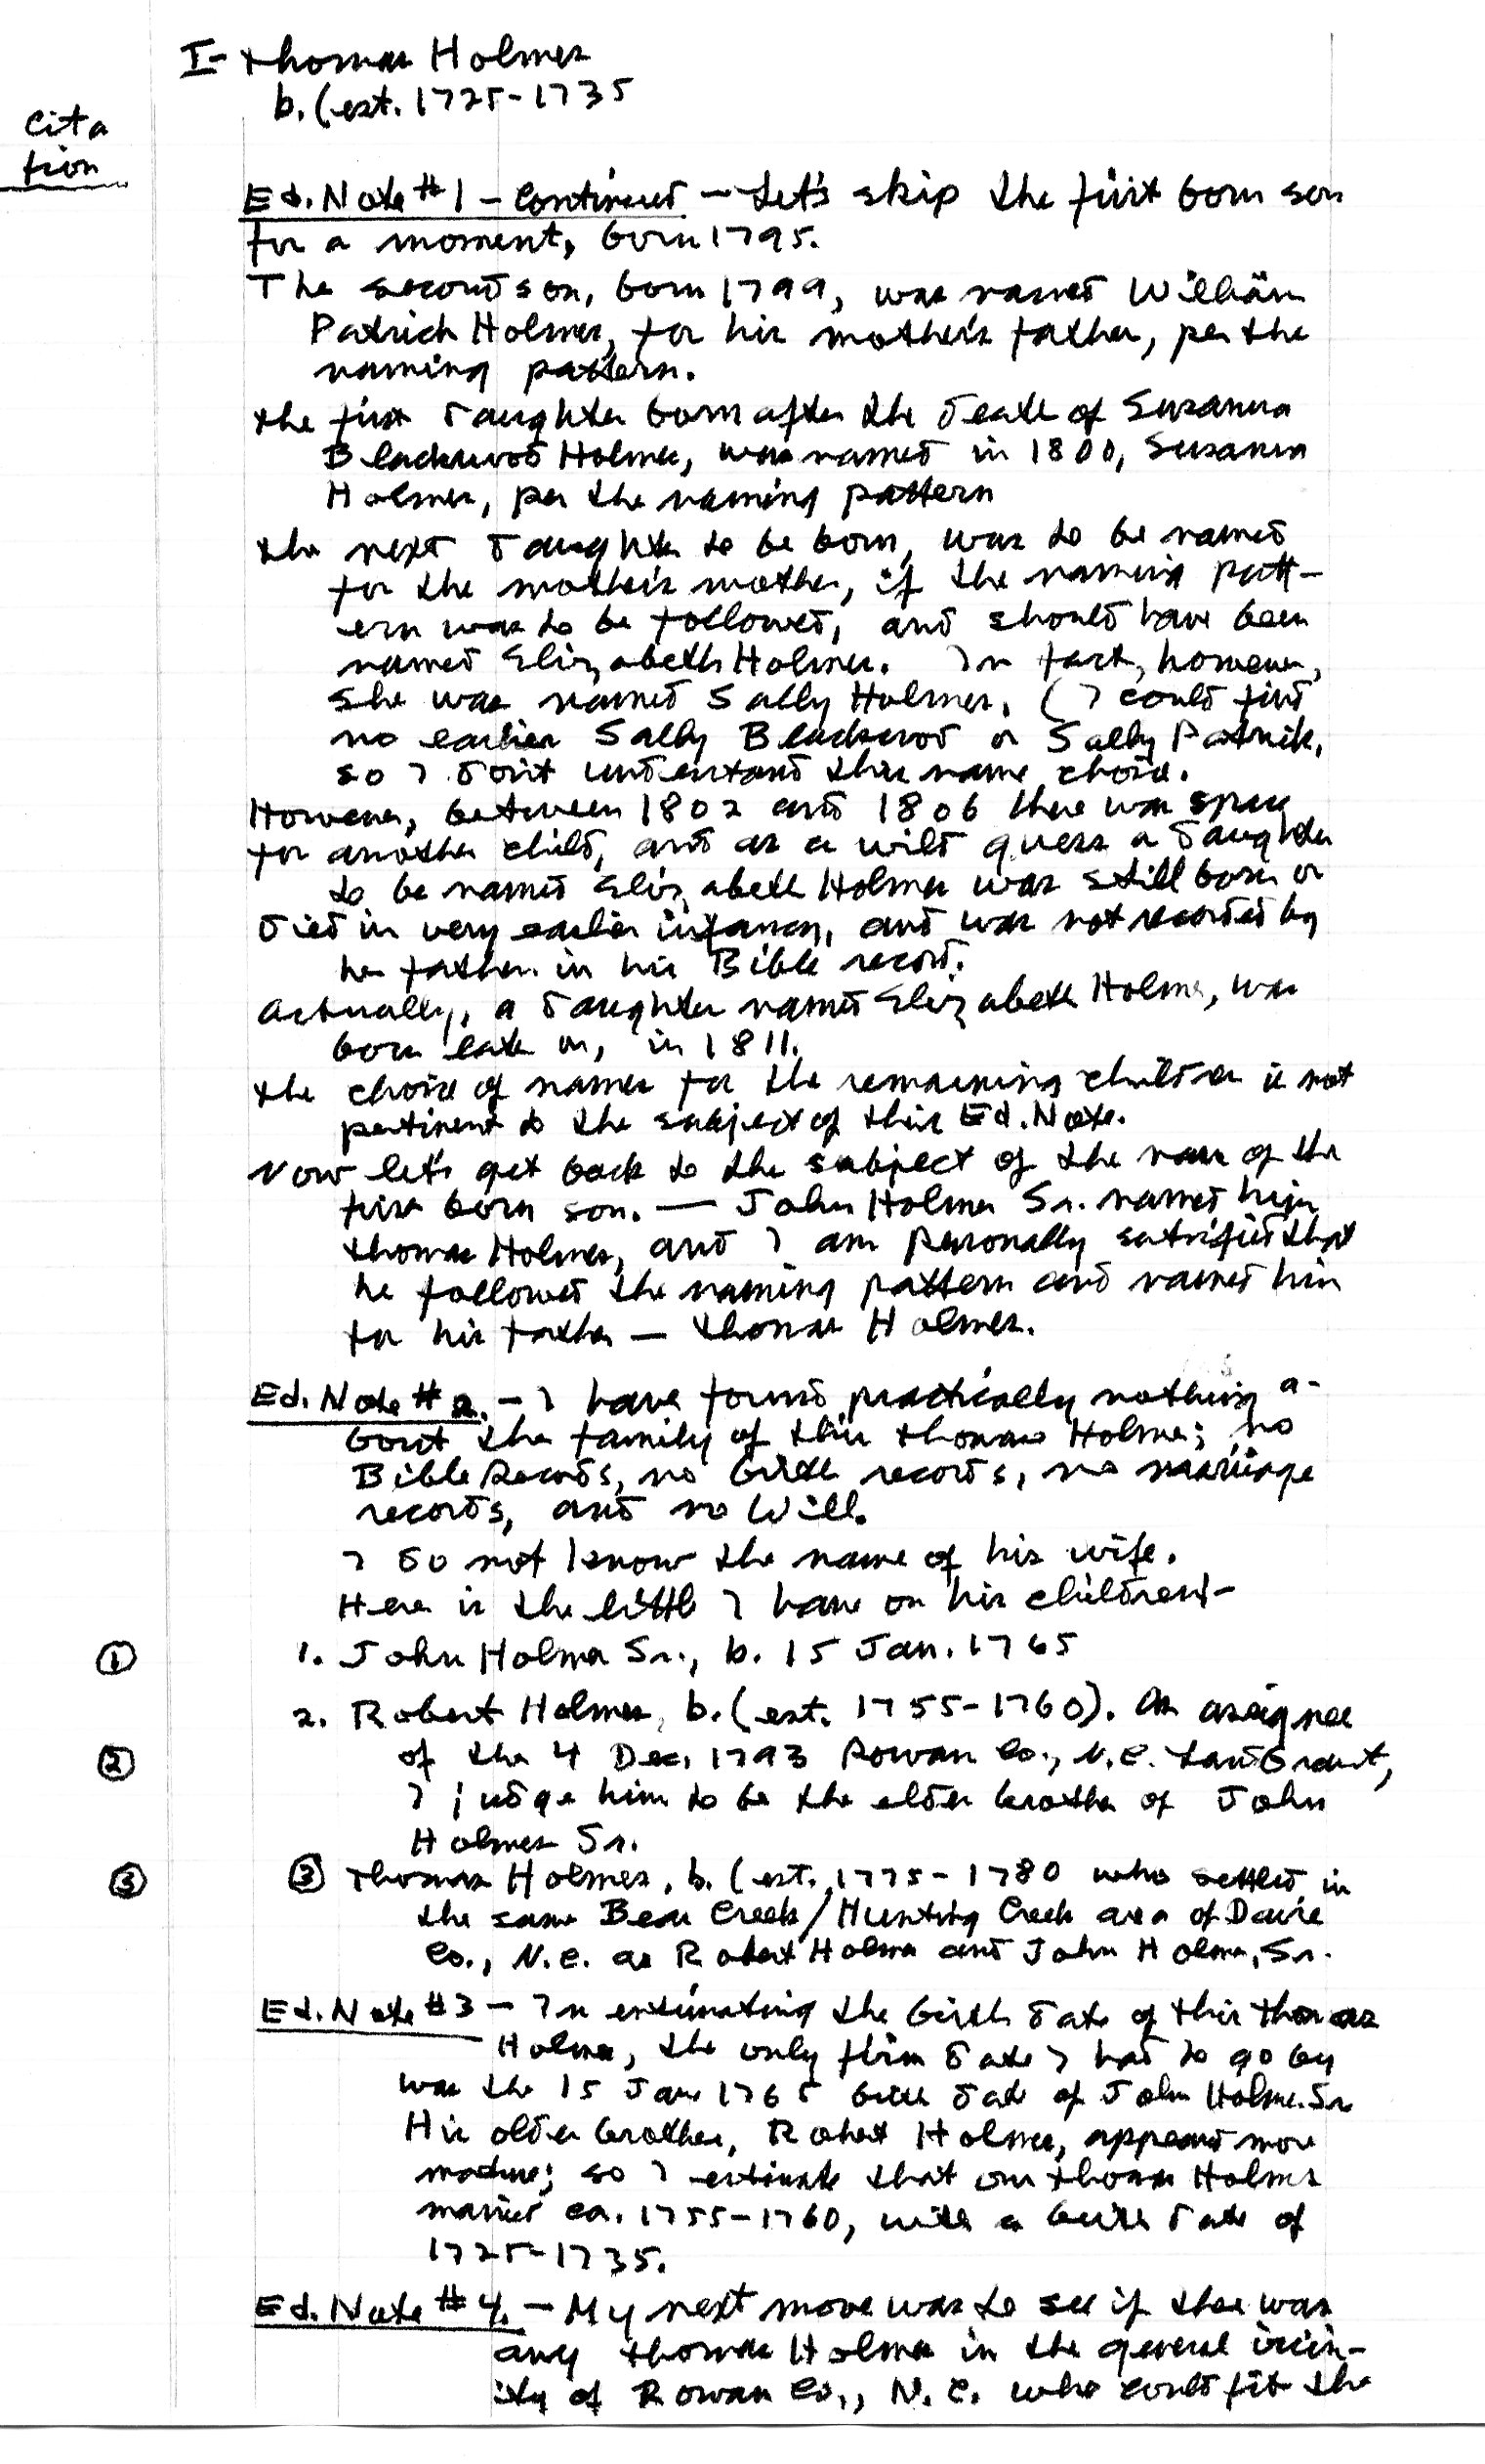 I - Thomas Holmes
b. (est. 1725-1735
Cita
tion
Ed. Note #1 - Continued - Let's skip the first born son
for a moment, born 1795.
The second son, born 1799, was named William
Patrick Holmes, for his mother's father, per the
naming pattern.
The first daughter born after the death of Susanna
Blackwood Holmes, was named in 1800, Susanna
Holmes, per the naming pattern
The next daughter to be born, was to be named
for the mother's mother, if the naming patt-
ern was to be followed, and should have been
named Elizabeth Holmes. In fact, however,
she was named Sally Holmes. (I could find
no earlier Sally Blackwood or Sally Patrick,
so I don't understand this name choice.
However, between 1802 and 1806 there was space
for another child, and as a wild guess a daughter
to be named Elizabeth Holmes was still born or
died in very earlier infancy, and was not recorded by
her father in his Bible record.
Actually, a daughter named Elizabeth Holmes, was
born late on, in 1811.
The choice of names for the remaining children is not
pertinent to the subject of this Ed. Note.
Now let's get back to the subject of the name of the
first born son. — John Holmes Sr. named him
Thomas Holmes, and I am personally satisfied that
he followed the naming pattern and named him
for his father — Thomas Holmes.
Ed. Note #2. - I have found practically nothing a-
bout the family of this Thomas Holmes; no
Bible Records, no birth records, no marriage
records, and no Will.
I do not know the name of his wife.
Here is the little I have on his children:-
① 1. John Holmes Sr., b. 15 Jan. 1765
2. Robert Holmes, b. (est. 1755-1760). As assignee
② of the 4 Dec. 1793 Rowan Co., N.C. Land Grant,
I judge him to be the elder brother of John
Holmes Sr.
③ ③ Thomas Holmes, b. (est. 1775-1780 who settled in
the same Bear Creek/Hunting Creek area of Davie
Co., N.C. as Robert Holmes and John Holmes, Sr.
Ed. Note #3 - In estimating the birth date of this Thomas
Holmes, the only firm date I had to go by
was the 15 Jan 1765 birth date of John Holmes Sr
His older brother, Robert Holmes, appeared more
mature; so I estimate that our Thomas Holmes
married ca. 1755-1760, with a birth date of
1725-1735.
Ed. Note #4. - My next move was to see if there was
any Thomas Holmes in the general vicin-
ity of Rowan Co., N.C. who could fit the